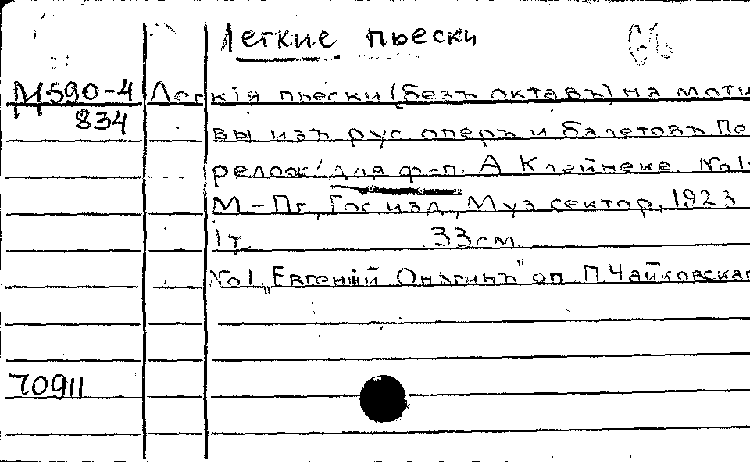 Легкие пьески
М590-4 Легкiя пьески (безъ октавъ) на моти
834 вы изъ рус. оперъ и балетовъ Пе
релож. для ф-п. А Клейнеке. No1
М-Пг, Гос. изд., Муз сектор, 1923
1т. 33см.
No1 „Евгенiй Онѣгинъ" оп П. Чайковскаг
70911